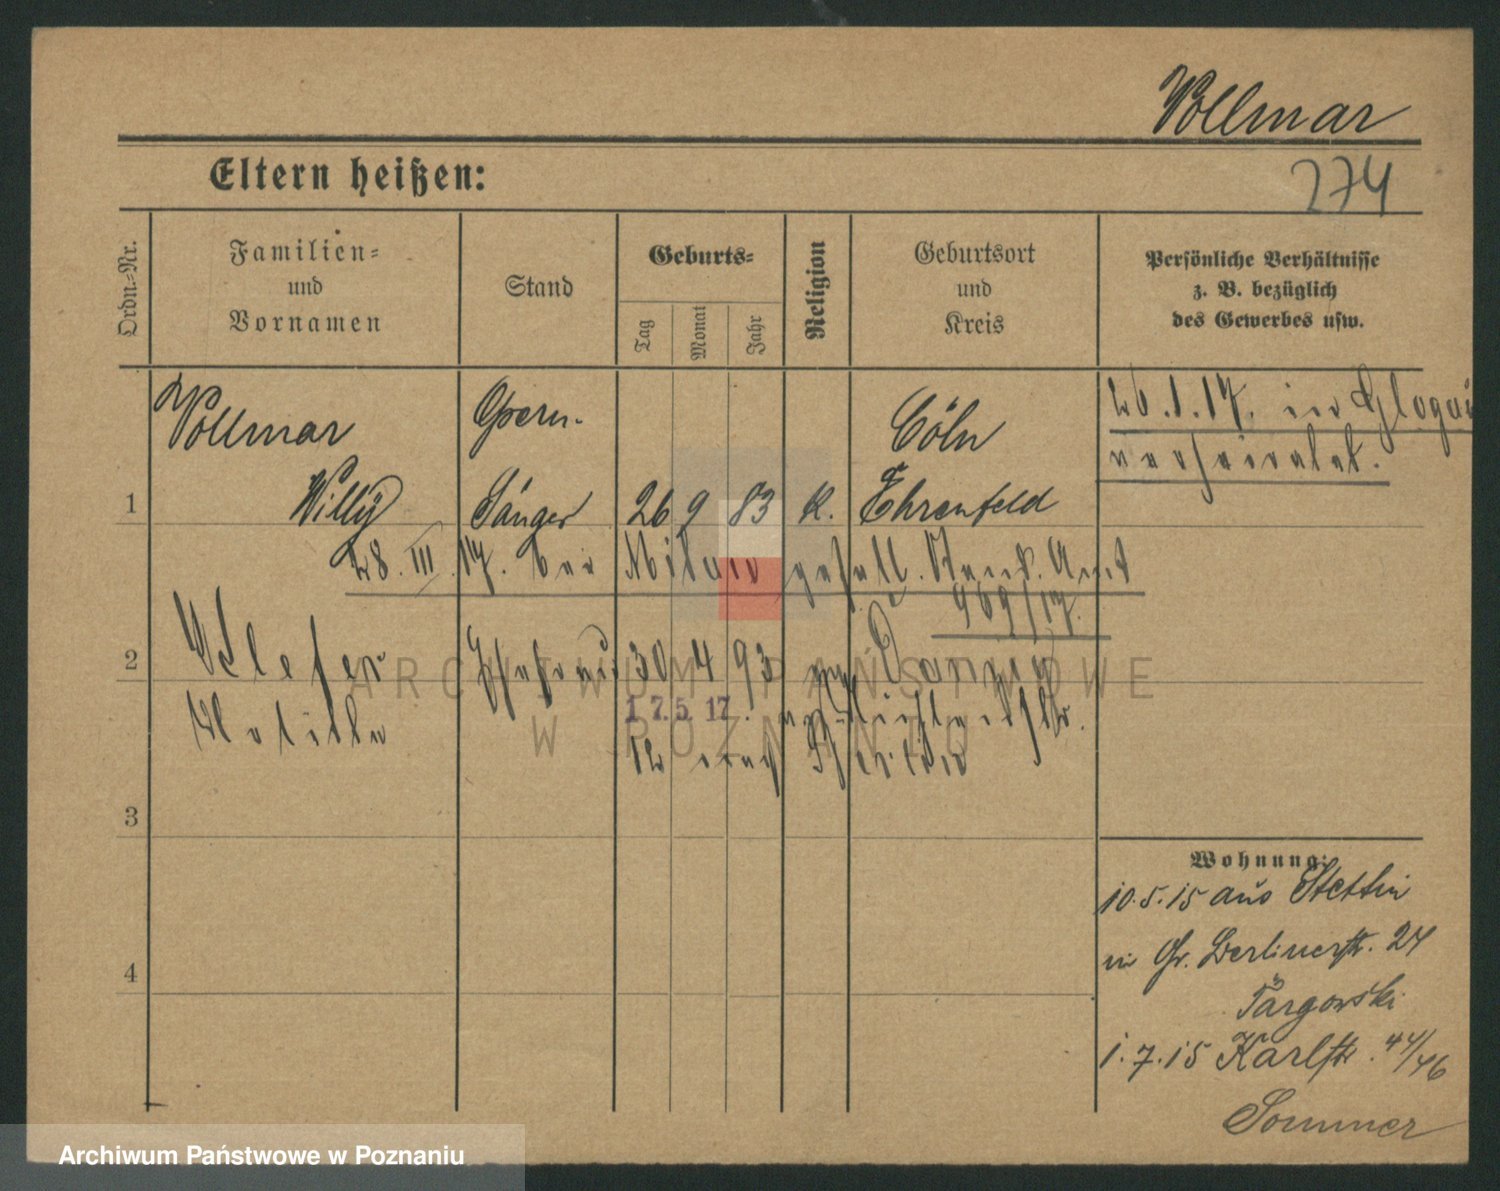 Vollmar
Eltern heißen:
274
Ordn=Nr.
Familien=
und
Vornamen
Stand
Geburts=
Tag
Monat
Jahr
Religion
Geburtsort
und
Kreis
Persönliche Verhältnisse
z. B. bezüglich
des Gewerbes usw.
Vollmar
Opern-
Cöln
26.1.17. in Glogau
verheiratet.
1
Willy
Sänger
26 9 83
K.
Ehrenfeld
28.III.17. bei gefall. Stand. Amt
969/17.
2
Ehefrau
30 4 93
Danzig
17.5.17.
ARCHIWUM PAŃSTWOWE
W POZNANIU
3
4
Wohnung:
10.5.15 aus Stettin
in Gr. Berlinerstr. 24
Targowski
1.7.15 Karlstr. 44/46
Sommer
Archiwum Państwowe w Poznaniu